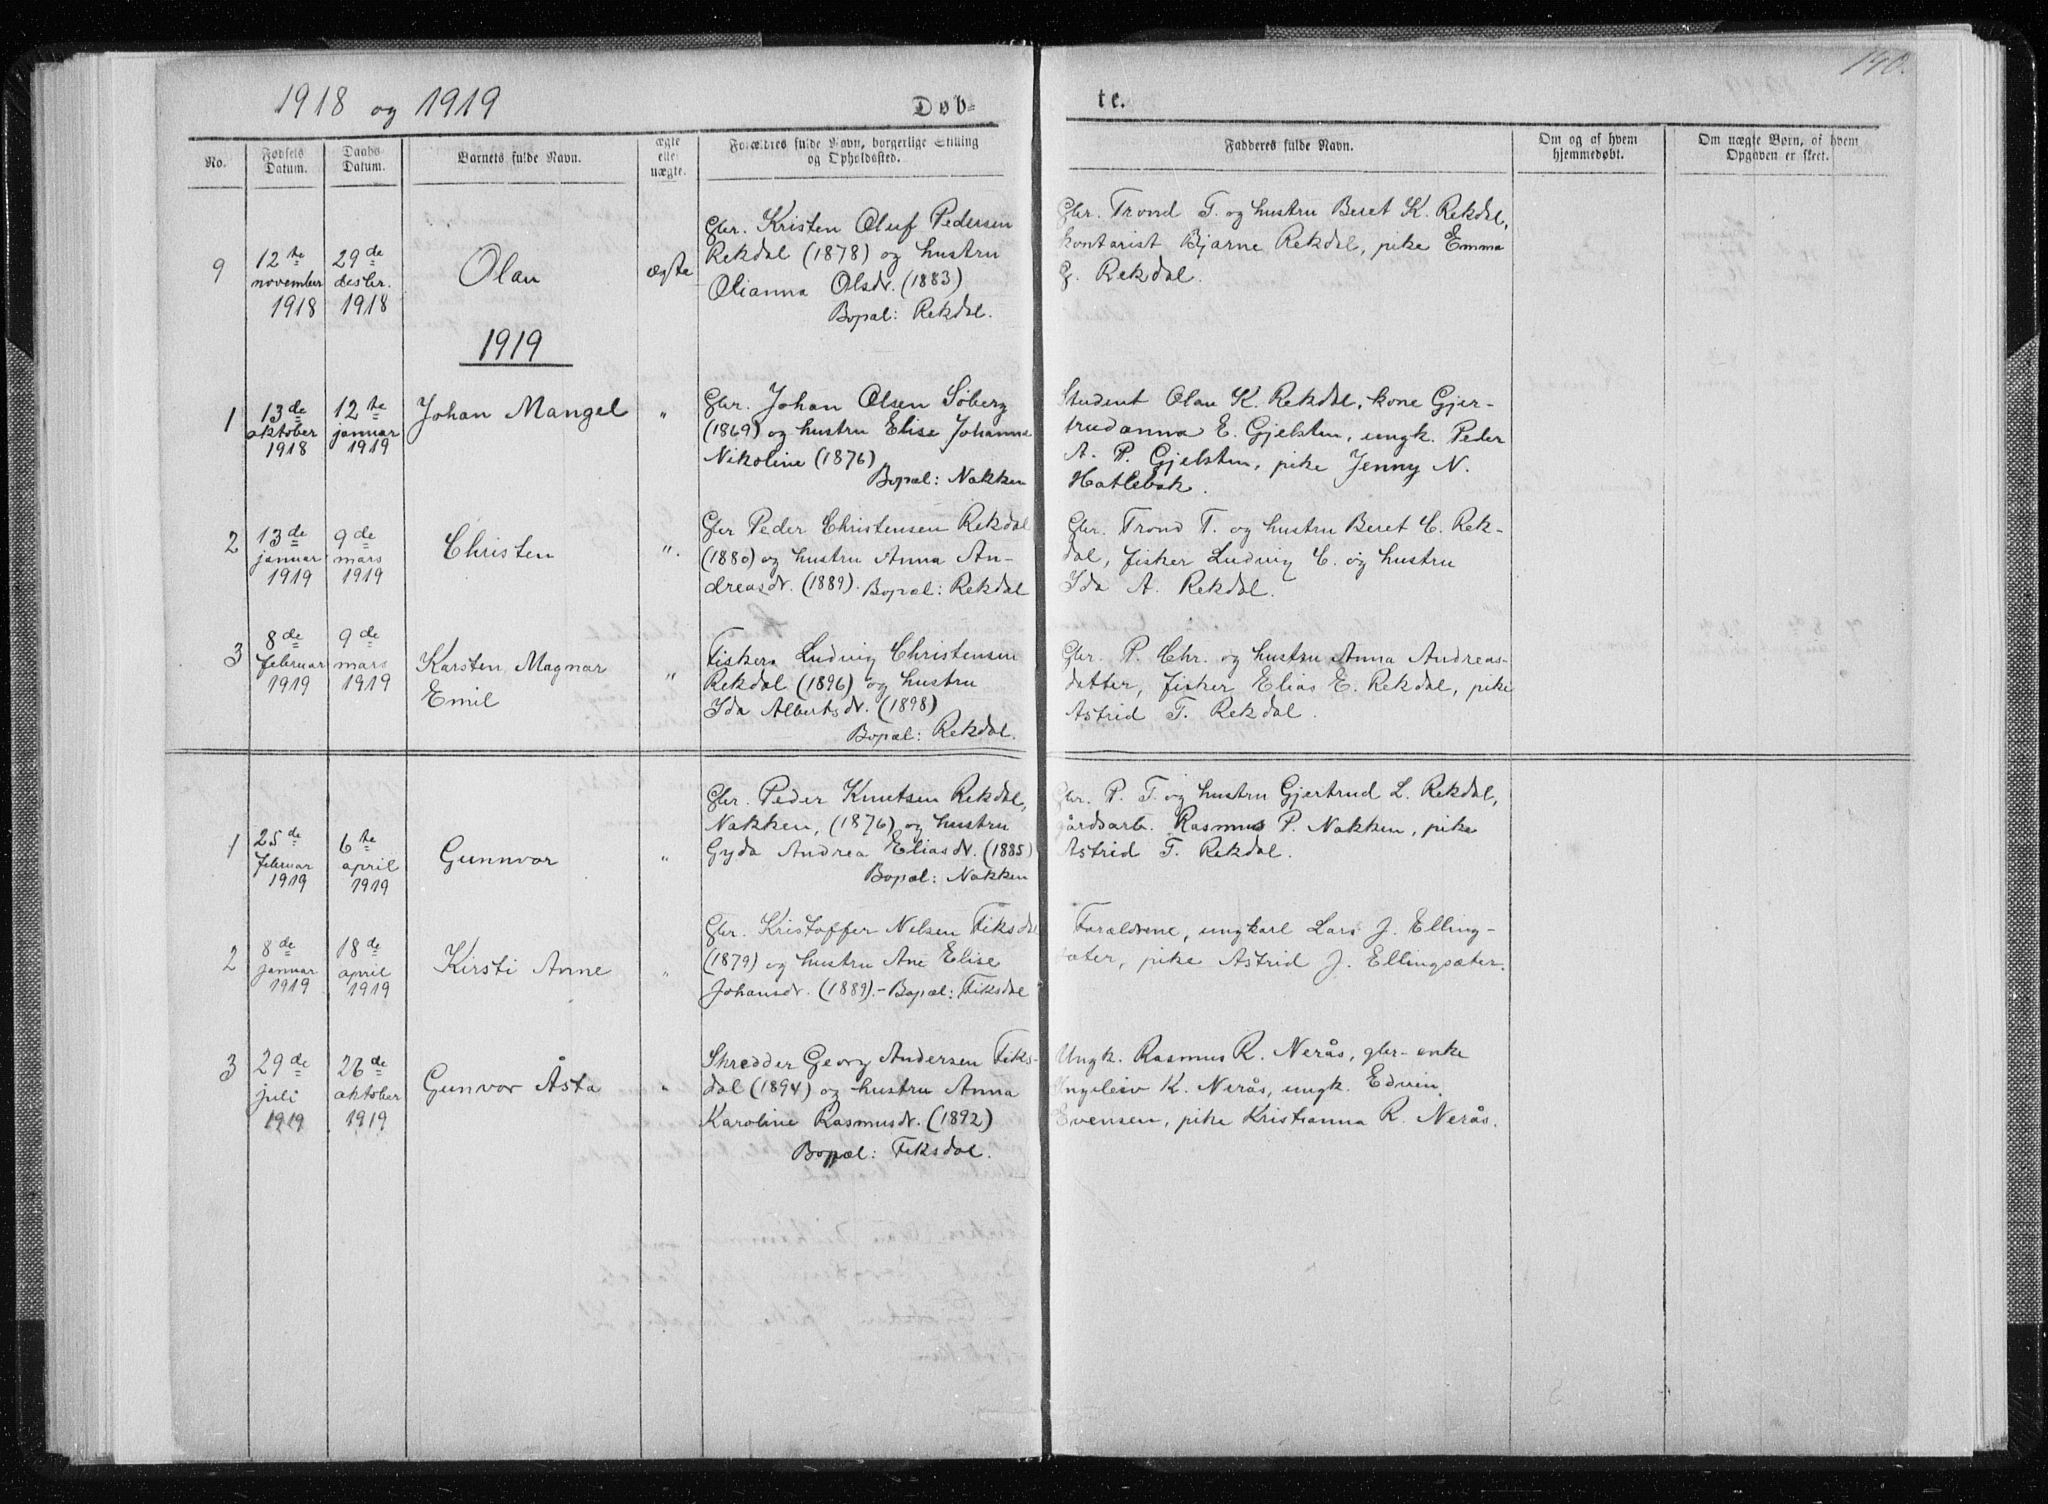 140.
1918 og 1919
Døb-
te.
No.
Fødsels Datum.
Daabs Datum.
Barnets fulde Navn.
ægte eller uægte.
Forældres fulde Navn, borgerlige Stilling
og Opholdssted.
Fadderes fulde Navn.
Om og af hvem
hjemmedøbt.
Om uægte Børn, af hvem
Opgaven er skeet.
9
12te
november
1918
29de
desbr.
1918
Olau
ægte
Gbr. Kristen Oluf Pedersen
Rekdal (1878) og hustru
Olianna Olsdr. (1883)
Bopæl: Rekdal.
Gbr. Trond T. og hustru Beret K. Rekdal,
kontorist Bjarne Rekdal, pike Emma
G. Rekdal.
1919
1
13de
oktober
1918
12te
januar
1919
Johan Mangel
"
Gbr. Johan Olsen Søberg
(1869) og hustru Elise Johanna
Nikoline (1876)
Bopæl: Nakken
Student Olau K. Rekdal, kone Gjer-
trudanna E. Gjelsten, ungk. Peder
A. P. Gjelsten, pike Jenny N.
Hatlebak.
2
13de
januar
1919
9de
mars
1919
Christen
".
Gbr Peder Christensen Rekdal
(1880) og hustru Anna An-
dreasdr. (1889). Bopæl: Rekdal
Gbr. Trond T. og hustru Beret C. Rek-
dal, fisker Ludvig C. og hustru
Ida A. Rekdal.
3
8de
februar
1919
9de
mars
1919
Karsten Magnar
Emil
"
Fisker Ludvig Christensen
Rekdal (1896) og hustru
Ida Albertsdr. (1898)
Bopæl: Rekdal.
Gbr. P. Chr. og hustru Anna Andreas-
datter, fisker Elias E. Rekdal, pike
Astrid T. Rekdal.
1
25de
februar
1919
6te
april
1919
Gunnvor
"
Gbr. Peder Knutsen Rekdal,
Nakken, (1876) og hustru
Gyda Andrea Eliasdr. (1885)
Bopæl: Nakken
Gbr. P. T. og hustru Gjertrud L. Rekdal,
gårdsarb. Rasmus P. Nakken, pike
Astrid T. Rekdal.
2
8de
januar
1919
18de
april
1919
Kirsti Anne
"
Gbr. Kristoffer Nilsen Fiksdal
(1879) og hustru Ane Elise
Johansdr. (1889).- Bopæl: Fiksdal
Forældrene, ungkarl Lars J. Elling-
sæter, pike Astrid J. Ellingsæter.
3
29de
juli
1919
26de
oktober
1919
Gunvor Åsta
"
Skredder Georg Andersen Fiks-
dal (1894) og hustru Anna
Karoline Rasmusdr. (1892)
Bopæl: Fiksdal.
Ungk. Rasmus R. Nerås, gbr-enke
Ingeleiv K. Nerås, ungk. Edvin
Evensen, pike Kristianna R. Nerås.